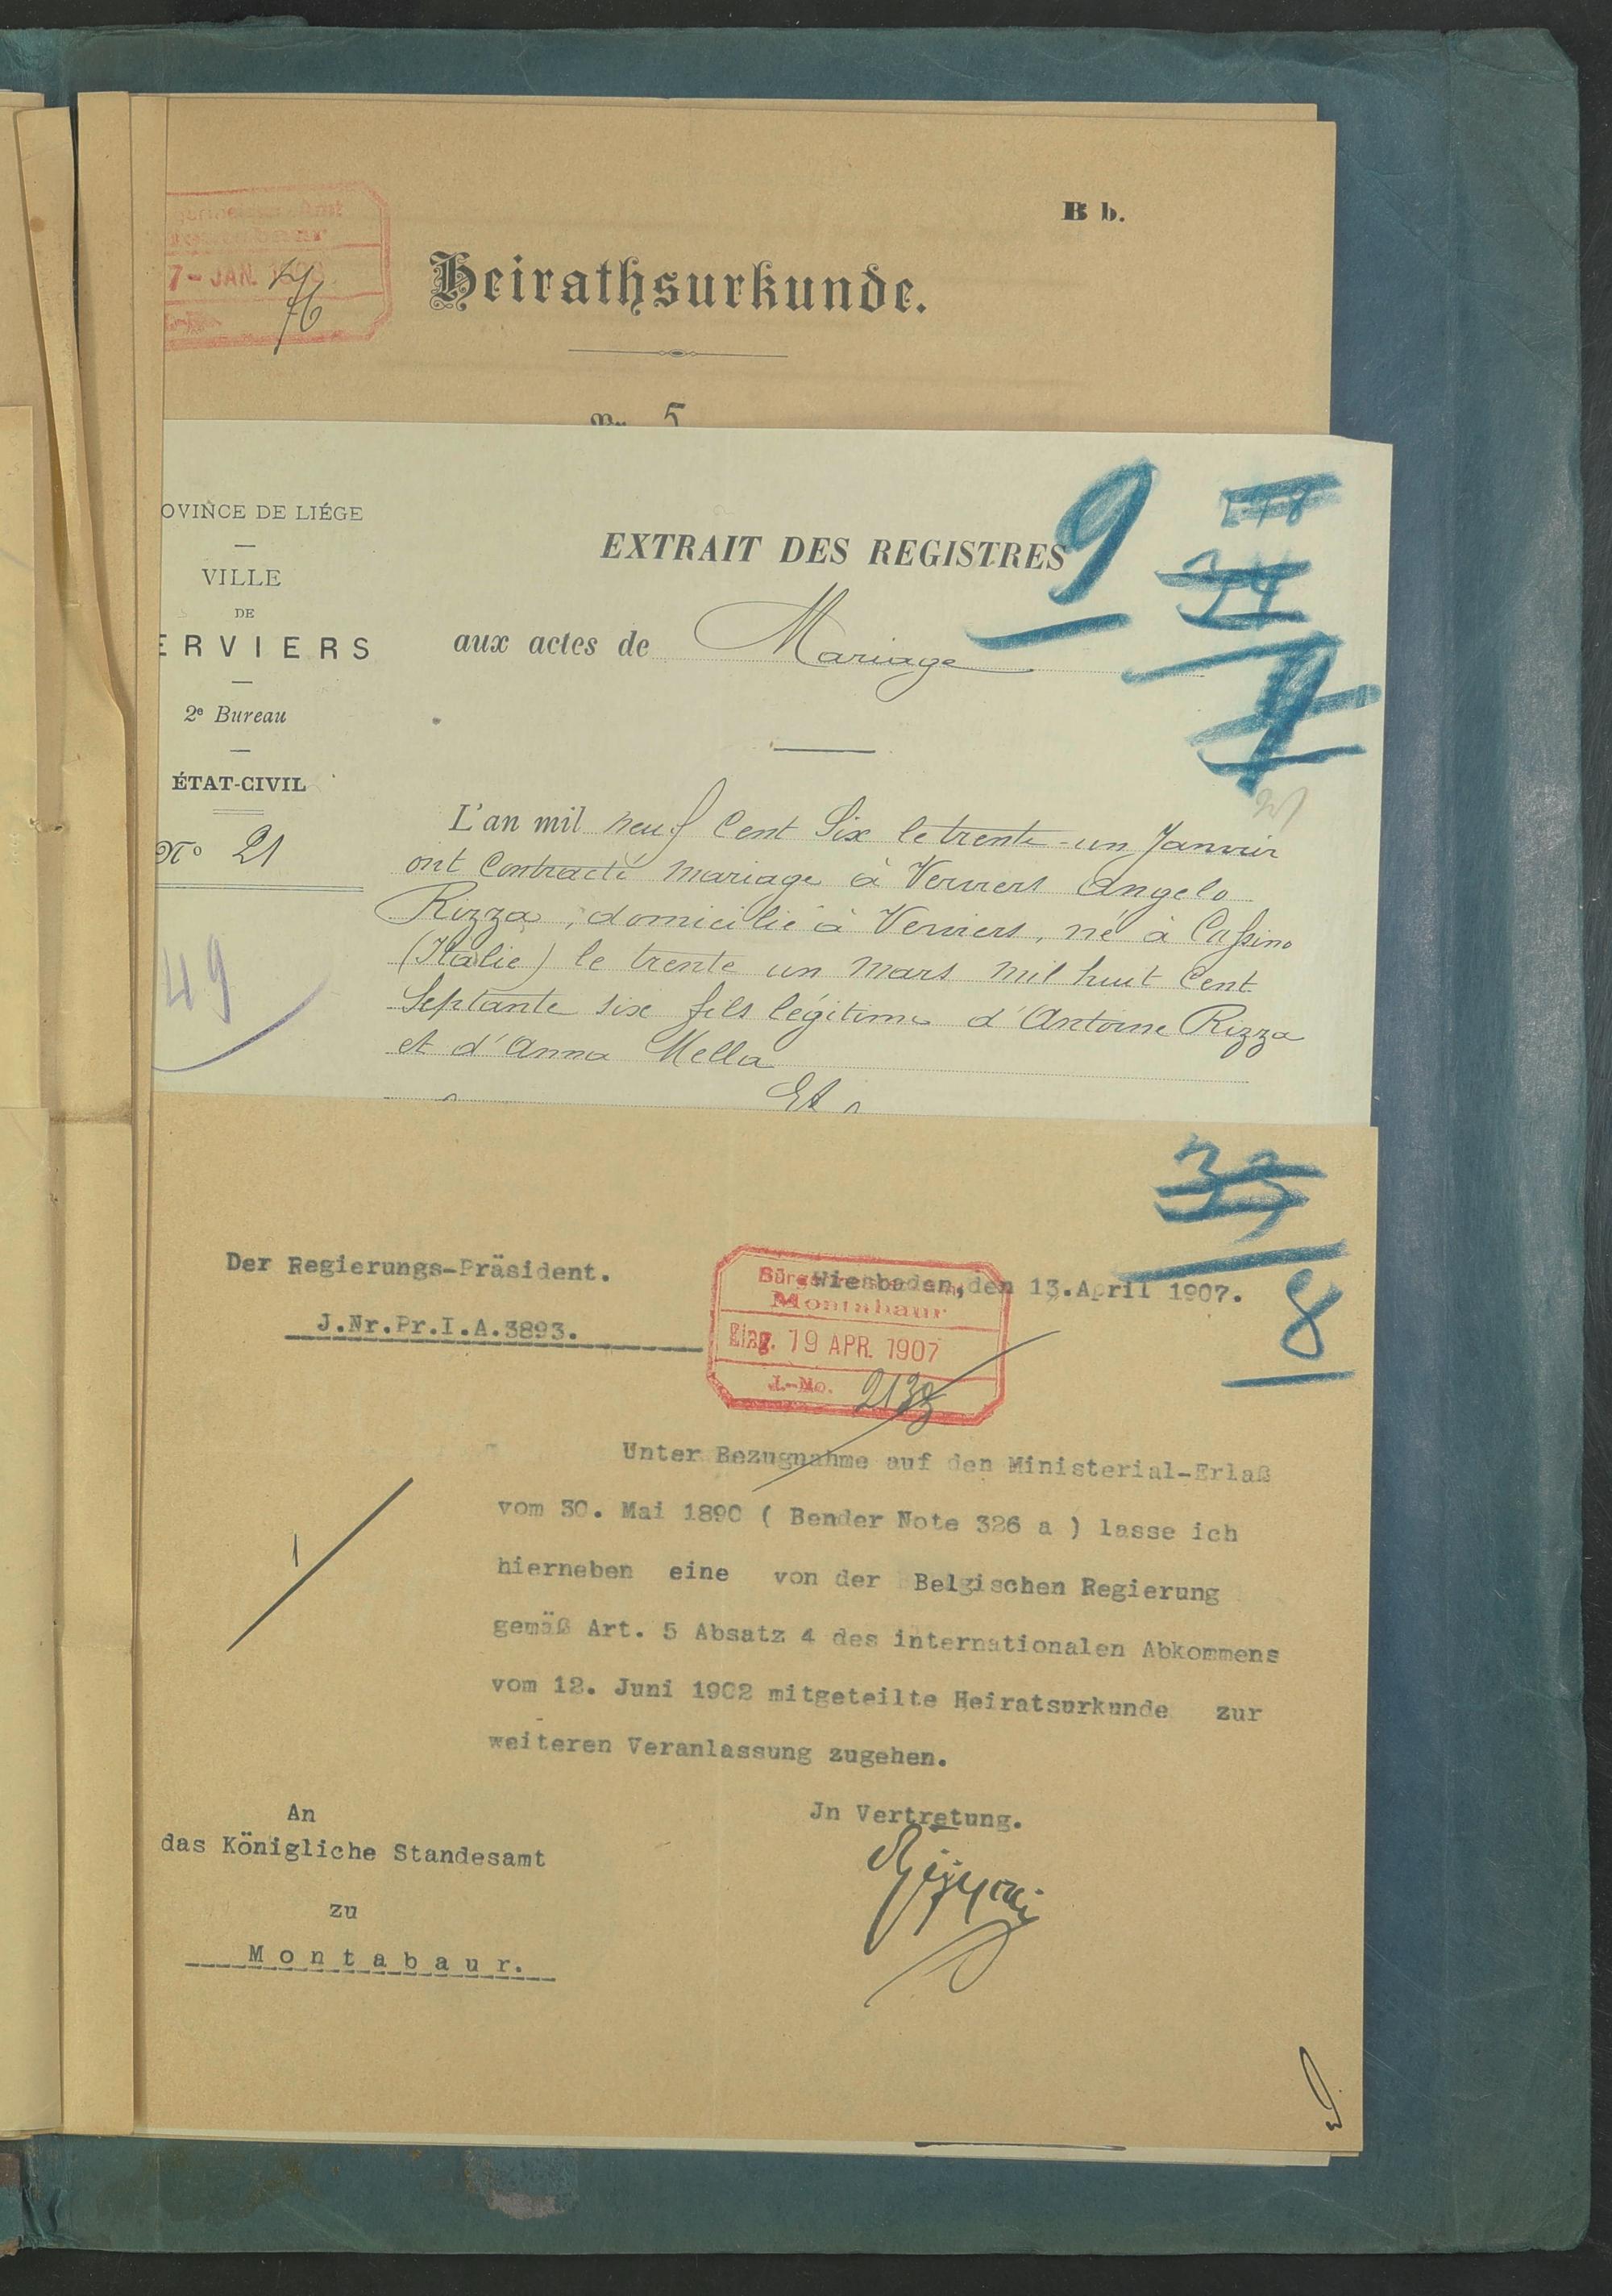 B b.
7 - JAN.
76
Heirathsurkunde.
5
OVINCE DE LIÉGE
VILLE
DE
ERVIERS
2e Bureau
ÉTAT-CIVIL
No 21
49
EXTRAIT DES REGISTRES
9
aux actes de Mariage
L'an mil neuf Cent Six le trente-un Janvier
ont Contracté mariage à Verviers Angelo
Rizza, domicilié à Verviers, né à Cassino
(Italie) le trente un mars mil huit Cent
Septante six fils légitime d'Antoine Rizza
et d'Anna Mella
Et
33
8
Der Regierungs-Präsident.
Wiesbaden,den 13.April 1907.
J.Nr.Pr.I.A.3893.
Montabaur
Eing. 19 APR. 1907
J.-No. 2133
Unter Bezugnahme auf den Ministerial-Erlaß
vom 30. Mai 1890 ( Bender Note 326 a ) lasse ich
hierneben eine von der Belgischen Regierung
gemäß Art. 5 Absatz 4 des internationalen Abkommens
vom 12. Juni 1902 mitgeteilte Heiratsurkunde zur
weiteren Veranlassung zugehen.
1
Jn Vertretung.
An
das Königliche Standesamt
zu
Montabaur.